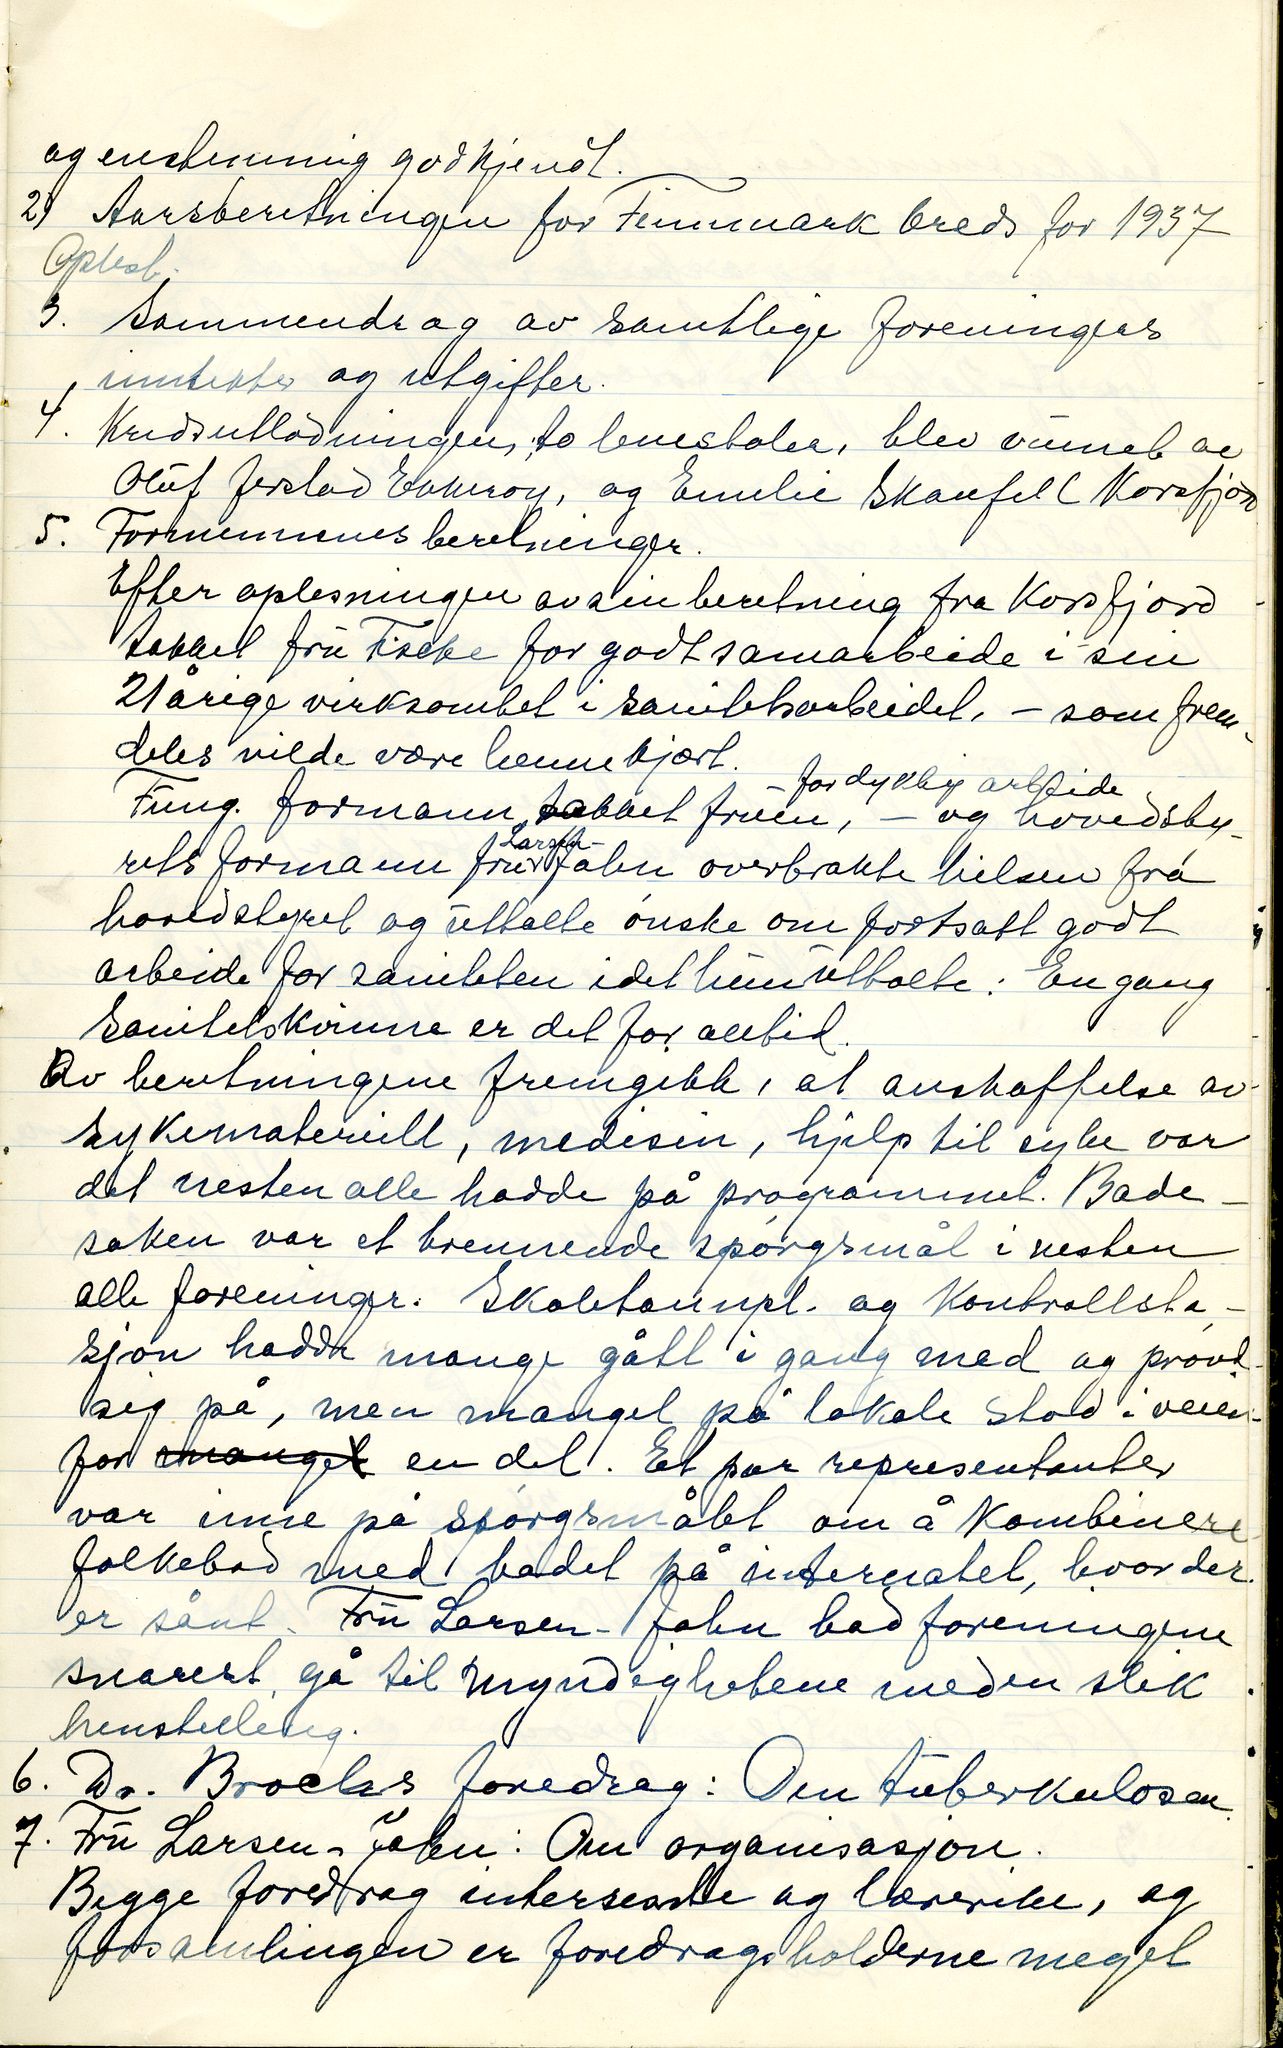 og enstemmig godkjendt.
2) Aarsberetningen for Finnmark Creds for 1937
Oplest.
3. Sammendrag av samtlige foreningers
inntekter og utgifter.
4. Kredsutlodningen, to lenestoler, blev vunnet av
Oluf Jerstad Ekkerøy, og Emelie Skanfell Korsfjord
5. Formennenes beretninger.
Efter oplesningen av sin beretning fra Korsfjord
takket frü for godt samarbeide i sin
21 årige virksomhet i sanitetsarbeidet, – som frem-
deles vilde være henne kjært.
for dyktig arbeide
Fung. formann takket früen, – og hovedsty-
Larsen-
rets formann frü Jahn overbrakte hilsen fra
hovedstyret og üttalte ønske om fortsatt godt
arbeide for saniteten idet hün üttalte: En gang
Sanitetskvinne er det for alltid.
Av beretningene fremgikk, at anskaffelse av
sykemateriell, medisin, hjelp til syke var
det nesten alle hadde på programmet. Bade-
saken var et brennende spørgsmål i nesten
alle foreninger. Skoletannpl. og Kontrollsta-
sjon hadde mange gått i gang med og prøvd
sig på, men mangel på lokale stod i veien
for mangel en del. Et par representanter
var inne på spørgsmålet om å kombinere
folkebad med badet på internatet, hvor der
er sånt. Frü Larsen-Jahn bad foreningene
snarest gå til myndighetene med en slik
henstilling.
6. Dr. Brochs foredrag: Om tüberkulosen.
7. Frü Larsen-Jahn: Om organisasjon.
Begge foredrag interesante og lærerike, og
forsamlingen er foredragsholderne meget